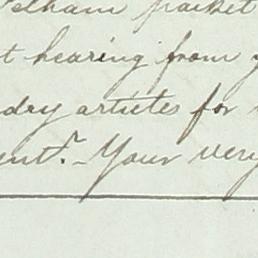 elham packet
t hearing from y
dry articles for
unt? - Your very